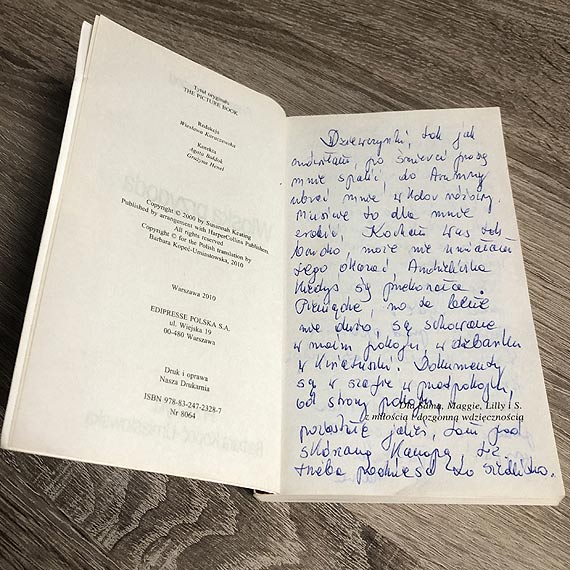 Tytuł oryginału
THE PICTURE BOOK
Redakcja
Wiesława Karaczewska
Korekta
Agata Bołdok
Grażyna Henel
Copyright © 2000 by Susannah Keating
Published by arrangement with HarperCollins Publishers.
All rights reserved
Copyright © for the Polish translation by
Barbara Kopeć-Umiastowska, 2010
Warszawa 2010
EDIPRESSE POLSKA S.A.
ul. Wiejska 19
00-480 Warszawa
Druk i oprawa
Nasza Drukarnia
ISBN 978-83-247-2328-7
Nr 8064
Dziewczynki, tak jak
mówiłam, po śmierci proszę
mnie spalić, do
ubrać mnie w kolor różowy.
Musicie to dla mnie
zrobić. Kocham was
bardzo, może nie umiałam
tego okazać,
kiedyś się przekonacie.
Pieniądze, no to będzie
nie dużo, są schowane
w moim pokoju, w dzbanku
w kwiatuszki. Dokumenty
są w szafie w przedpokoju,
od strony pokoju.
Dla Sama, Maggie, Lilly i S.
z miłością i dozgonną wdzięcznością
pozostałe jakieś, tam pod
skórzaną kanapą, też
trzeba podnieść do siedziska.